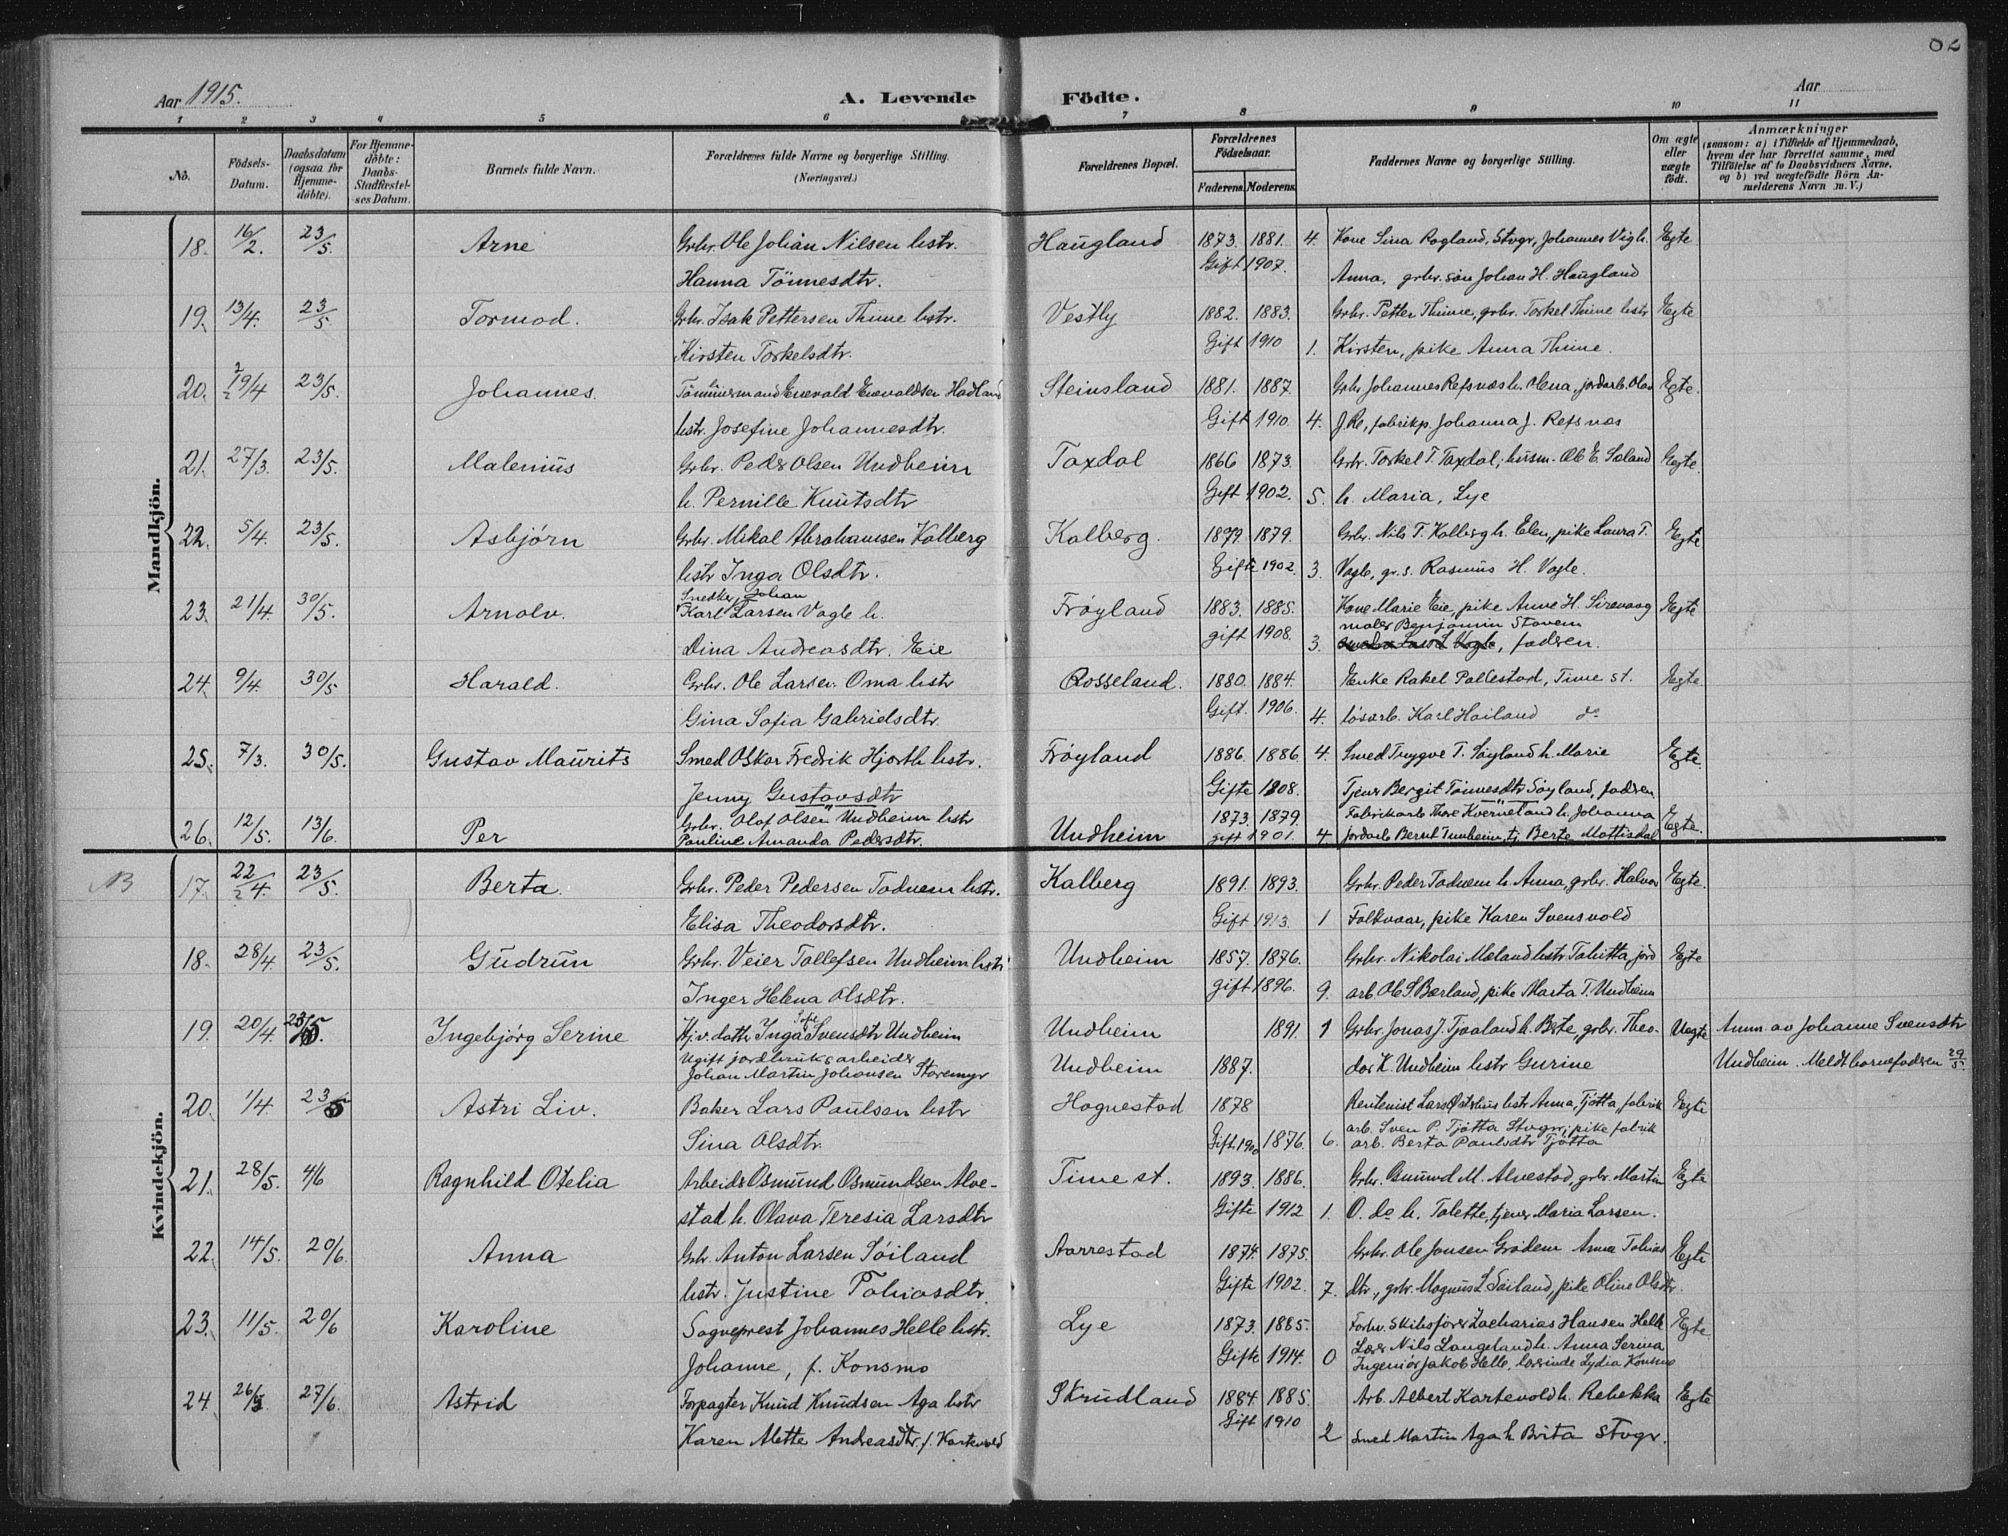 82
Aar 1915.
A. Levende Födte.
Aar
1 2 3 4 5 6 7 8 9 10 11
No.
Födsels-Datum.
Daabsdatum (ogsaa for Hjemme-döbte).
For Hjemme-döbte: Daabs-Stadfæstel-ses Datum.
Barnets fulde Navn.
Forældrenes fulde Navne og borgerlige Stilling.
(Næringsvei.)
Forældrenes Bopæl.
Forældrenes Födselsaar.
Faderens. Moderens.
Faddernes Navne og borgerlige Stilling.
Om ægte eller uægte født.
Anmærkninger
(saasom: a) i Tilfælde af Hjemmedaab, hvem der har forrettet samme, med Tilföielse af to Daabsvidners Navne, og b) ved uægtefödte Börn Anmelderens Navn m. V.)
Mandkjön.
18. 16/2. 23/5. Arne Grbr. Ole Johan Nilsen hstr. Haugland 1873. 1881. 4. Kone Sina Rogland, Stvgr, Johannes Vigh. Egte
Hanna Tönnesdtr. Gift 1907. Anna, grbr. sön Johan H. Haugland
19. 13/4. 23/5 Tormod. Grbr. Isak Pettersen Thime hstr. Vestly 1882. 1883. Grbr. Petter Thime, grbr. Torkel Thime hstr Egte
Kirsten Torkelsdtr. Gift 1910 1. Kirsten, pike Anna Thime.
20. 19/4 23/5. Johannes. Tömmermand Enevald Enevaldsen Hadland Steinsland 1881. 1887. Grbr Johannes Refsnes h. Olena, jordarb. Olav Egte.
hstr. Josefine Johannesdtr. Gift 1910. 4. J. Re, fabrikp. Johanna J. Refsnes
21. 27/3. 23/5. Malenius Grbr. Peder Olsen Undheim Taxdal 1866 1873. Grbr. Torkel T. Taxdal, husm. Ole E. Saland Egte.
h. Pernille Knutsdtr Gift 1902. 5. h. Maria, Lye
22. 5/4. 23/5. Asbjørn Grbr. Mikal Abrahamsen Kalberg Kalberg. 1879. 1879. Grbr. Nils T. Kalberg h. Elen, pike Laura T. Egte
hstr Inga Olsdtr. Gift 1902. 3. Vagle, gr. s. Rasmus H. Vagle.
23. 21/4. 30/5. Arnolv. Snedker, Johan
Karl Larsen Vagle h. Frøyland 1883. 1885. Kone Marie Eie, pike Anne H. Sirevaag Egte
Dina Andreasdtr. Eie gift 1908. 3. maler Benjamin Stavem
fadren.
24. 9/4. 30/5 Harald. Grbr. Ole Larsen Oma hstr Rosseland. 1880. 1884. Enke Rakel Pallestad, Time st. Egte.
Gina Sofia Gabrielsdtr. Gift. 1906. 4. løsarb. Karl Hailand do
25. 7/3. 30/5. Gustav Maurits Smed Oskar Fredrik Hjorth hstr. Frøyland 1886. 1886. 4 Smed Trygve T. Søyland h. Marie Egte.
Jenny Gustavsdtr Gifte 1808. Tjener Bergit Tønnesdtr Søyland, fadren.
26. 12/5. 13/6. Per Grbr. Olaf Olsen Undheim hstr Undheim 1873. 1879. Fabrikarb Thore Kverneland h. Johanna Egte.
Pauline Amanda Pedersdtr. gift 1901. 4. Jordarb Bernt Tunheim, tj. Berte Mattisdal
Kvindekjön.
NB 17. 22/4. 23/5. Berta Grbr. Peder Pedersen Tadnem hstr. Kalberg 1891. 1893. Grbr. Peder Tadnem h. Anna, grbr. Halvor Egte.
Elisa Theodorsdtr. Gift 1913. 1 Folkvaar, pike Karen Svensvold
18. 28/4. 23/5. Gudrun Grbr. Veier Tollefsen Undheim hstr Undheim 1857. 1876. Grbr. Nikolai Mæland hstr Tabitta, jord Egte
Inger Helena Olsdtr. gift 1896. 9. arb. Ole S Bærland, pike Marta T. Undheim
19. 20/4. 23/5. Ingebjørg Serine Hj.v. datter Inga Sofie Svensdtr Undheim Undheim 1891. 1 Grbr Jonas J. Tjaaland h. Berte, grbr. Theo- Uegte Anm. av Johanne Svensdtr
Ugift jordbruksarbeider
Johan Martin Johansen Storemyr Undheim 1887. dor K. Undheim hstr Gurine Undheim. Meldt barnefadren 29/5.
20. 1/4. 23/5 Astri Liv. Baker Lars Paulsen hstr Hognestad 1878 Rentenist Lars Østhus hstr Anna, Tjøtta, fabrik Egte
Sina Olsdtr. Gift. 1900 1876. 6. arb. Sven P. Tjøtta Stvgr, pike fabrik
arb. Berta Paulsdtr Tjøtta
21. 28/5. 4/6 Ragnhild Otelia Arbeider Osmund Osmundsen Alve- Time st. 1893. 1886. Grbr. Osmund M. Alvestad, grbr. Martin Egte
stad h. Olava Teresia Larsdtr Gifte 1912 1. O. do h. Talette, tjener Maria Larsen.
22. 14/5. 20/6. Anna Grbr. Anton Larsen Søiland Aarrestad 1874. 1875. Grbr. Ole Jonsen Grødem Anna Tobias Egte
hstr. Justine Tobiasdtr. Gifte 1902. 7. dtr., grbr. Magnus L. Søiland, pike Oline Olsdtr.
23. 11/5. 20/6 Karoline Sogneprest Johannes Helle hstr. Lye 1873. 1885. Forhv. Skibsfører Zacharias Hansen Helle Egte.
Johanne, f. Konsmo Gifte 1914. 0 Lærer Nils Langeland h. Anna Serina
Ingeniør Jakob Helle, lærerinde Lydia Konsmo
24. 26/5 27/6. Astrid Forpagter Knud Knudsen Aga hstr Skrudland 1884. 1885. Arb. Albert Kartevold h. Rebekka Egte
Karen Alette Andreasdtr. f. Kartevold Gift 1910 2 Smed Martin Aga h. Brita Stvgr.